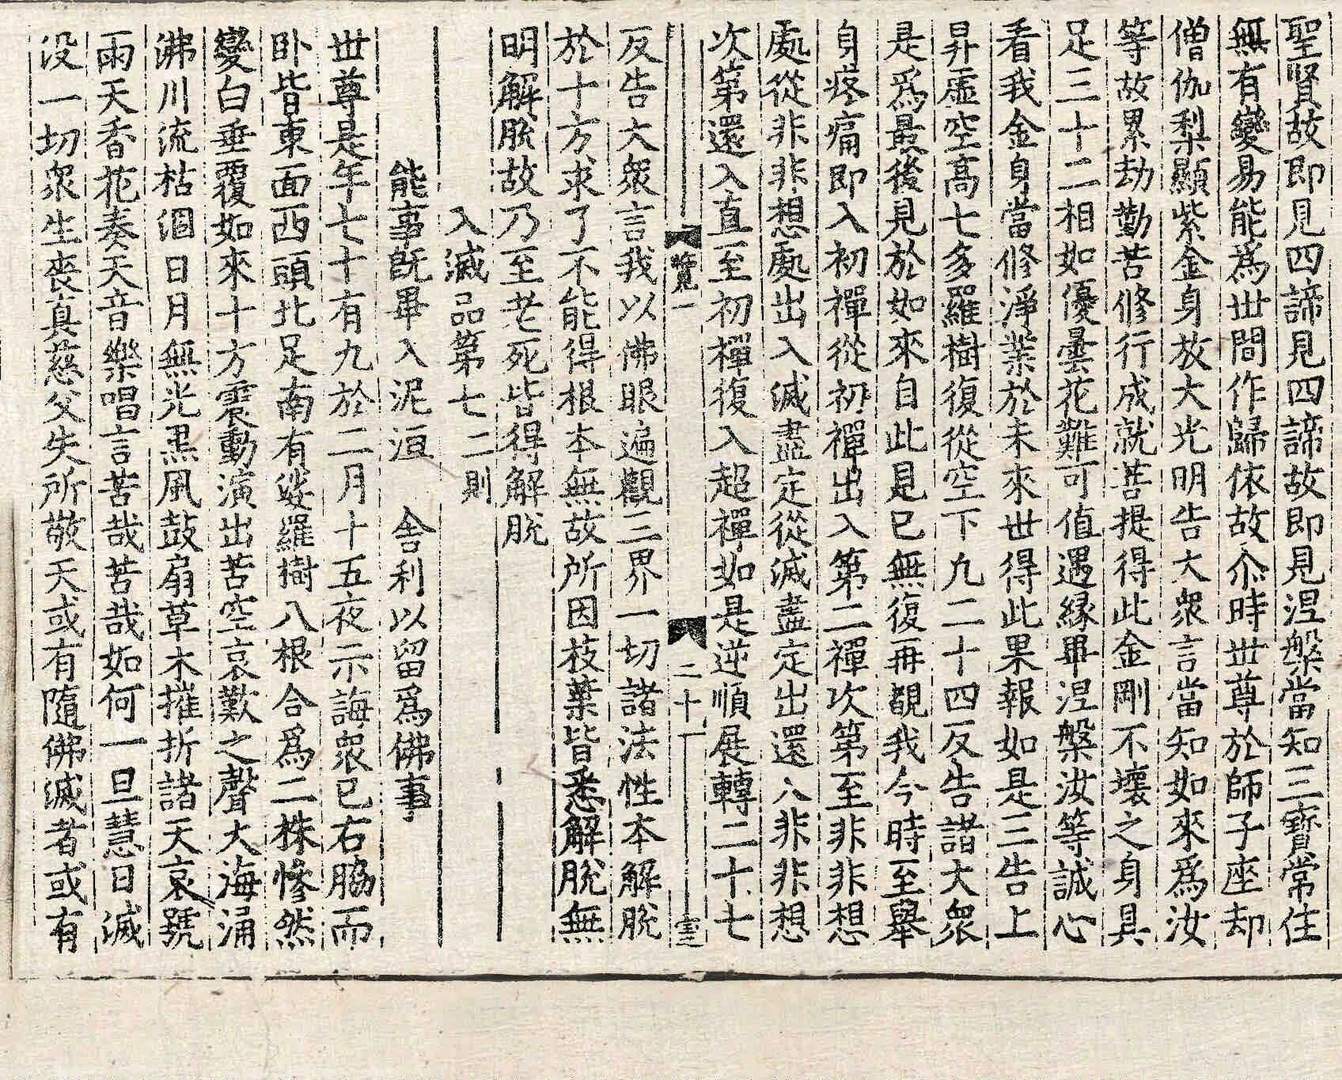 聖賢故即見四諦見四諦故即見涅槃當知三寶常住
無有變易能爲丗間作歸依故尒時丗尊於師子座却
僧伽梨顯紫金身放大光明告大衆言當知如來爲汝
等故累劫勤苦修行成就菩提得此金剛不壞之身具
足三十二相如優曇花難可值遇緣畢涅槃汝等誠心
看我金身當修淨業於未來世得此果報如是三告上
昇虛空高七多羅樹復從空下九二十四反告諸大衆
是爲最後見於如來自此見已無復再覩我今時至舉
身疼痛即入初禪從初禪出入第二禪次第至非非想
處從非非想處出入滅盡定從滅盡定出還入非非想
次第還入直至初禪復入超禪如是逆順展轉二十七
覽一 二十一
反告大衆言我以佛眼遍觀三界一切諸法性本解脫
於十方求了不能得根本無故所因枝葉皆悉解脫無
明解脫故乃至老死皆得解脫
入滅品第七 二則
能事旣畢入泥洹 舍利以留爲佛事
丗尊是年七十有九於二月十五夜示誨衆已右脇而
卧皆東面西頭北足南有娑羅樹八根合爲二株慘然
變白垂覆如來十方震動演出苦空哀歎之聲大海涌
沸川流枯涸日月無光黑風鼓扇草木摧折諸天哀號
雨天香花奏天音樂唱言苦哉苦哉如何一旦慧日滅
没一切衆生喪真慈父失所敬天或有隨佛滅者或有